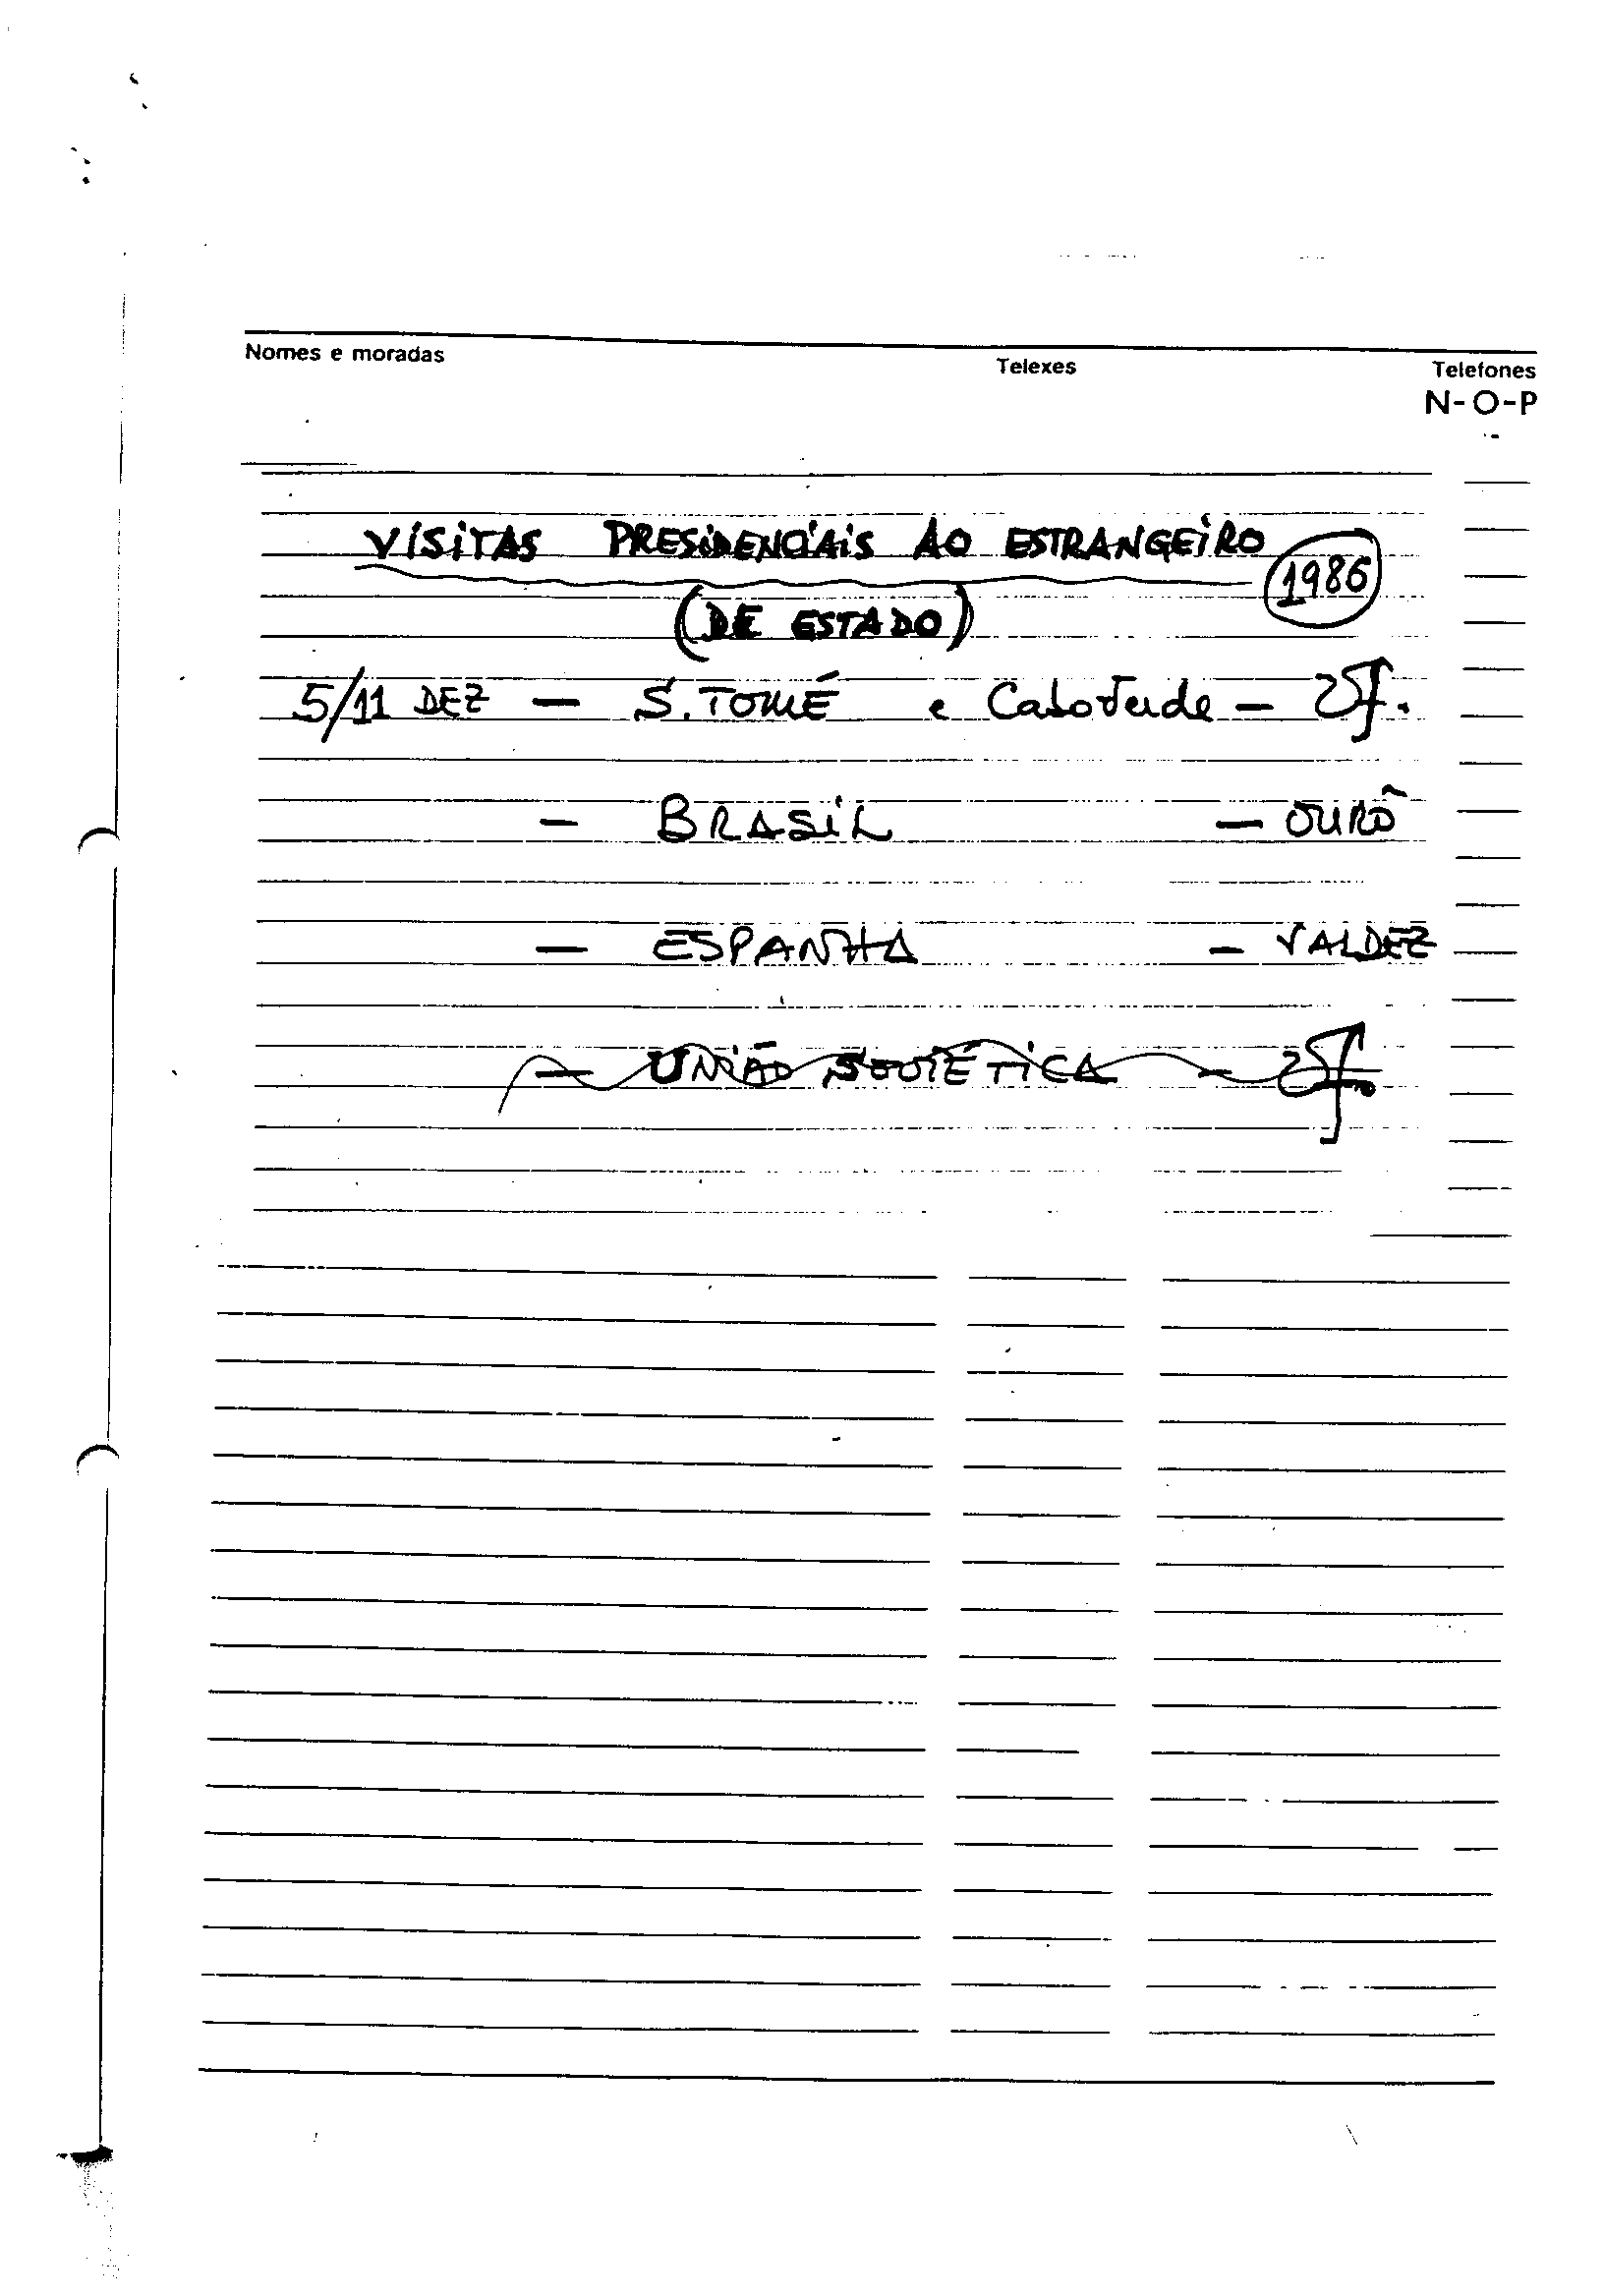 Nomes e moradas Telexes Telefones
N-O-P
VISITAS PRESIDENCIAIS AO ESTRANGEIRO
1986
(DE ESTADO)
5/11 DEZ — S. TOMÉ e Cabo Verde —
— BRASIL — OURÔ
— ESPANHA — VALDEZ
— UNIÃO SOVIÉTICA —